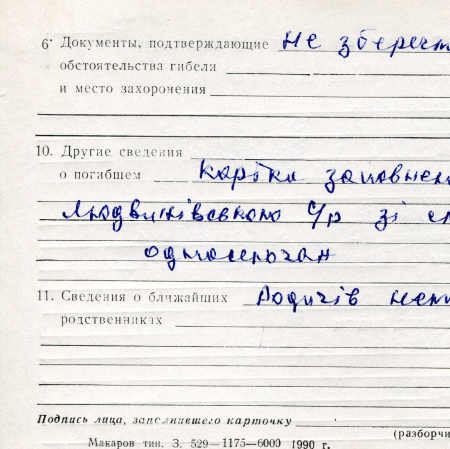 6· Документы, подтверждающие Не зберег
обстоятельства гибели
и место захоронения
10. Другие сведения
о погибшем картка заповнен
Людвинівського с/р зі с
односельчан
11. Сведения о ближайших Родичів нема
родственниках
Подпись лица, заполнившего карточку
(разборчи
Макаров тип. З. 529—1175—6000 1990 г.